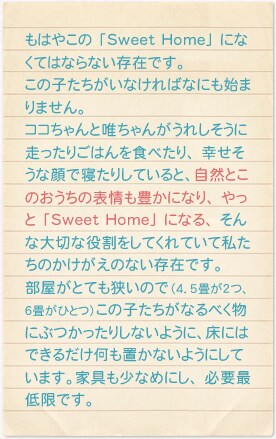 もはやこの「Sweet Home」にな
くてはならない存在です。
この子たちがいなければなにも始ま
りません。
ココちゃんと唯ちゃんがうれしそうに
走ったりごはんを食べたり、幸せそ
うな顔で寝たりしていると、自然とこ
のおうちの表情も豊かになり、やっ
と「Sweet Home」になる、そん
な大切な役割をしてくれていて私た
ちのかけがえのない存在です。
部屋がとても狭いので(4.5畳が2つ、
6畳がひとつ)この子たちがなるべく物
にぶつかったりしないように、床には
できるだけ何も置かないようにして
います。家具も少なめにし、必要最
低限です。